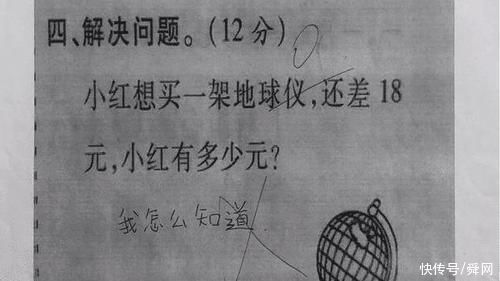 四、解决问题。(12分)
小红想买一架地球仪,还差18
元,小红有多少元?
我怎么知道
快传号/舜网